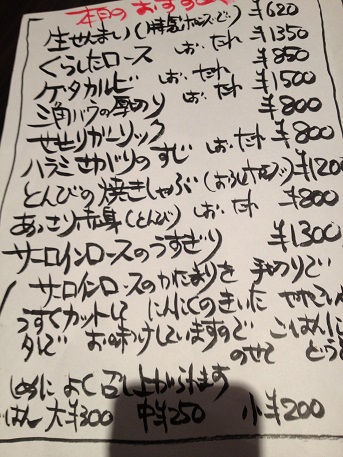 本日の おすすめ
生せんまい (特製 ¥620
くらしたロース しお・たれ ¥1350
ゲタカルビ しお・たれ ¥850
三角バラの厚切り しお・たれ ¥1500
せせりガーリック ¥800
ハラミさがりのすじ しお・たれ ¥800
とんびの焼きしゃぶ (おろしポン酢) ¥1200
あっさり赤身 (とんび) しお・たれ ¥800
サーロインロースのうすぎり ¥1300
サーロインロースのかたまりを 手切りで
うすくカットして にんにくのきいた
タレで お味つけしていますので ごはんに
のせて どうぞ
よく召し上がられます
ごはん 大¥300 中¥250 小¥200